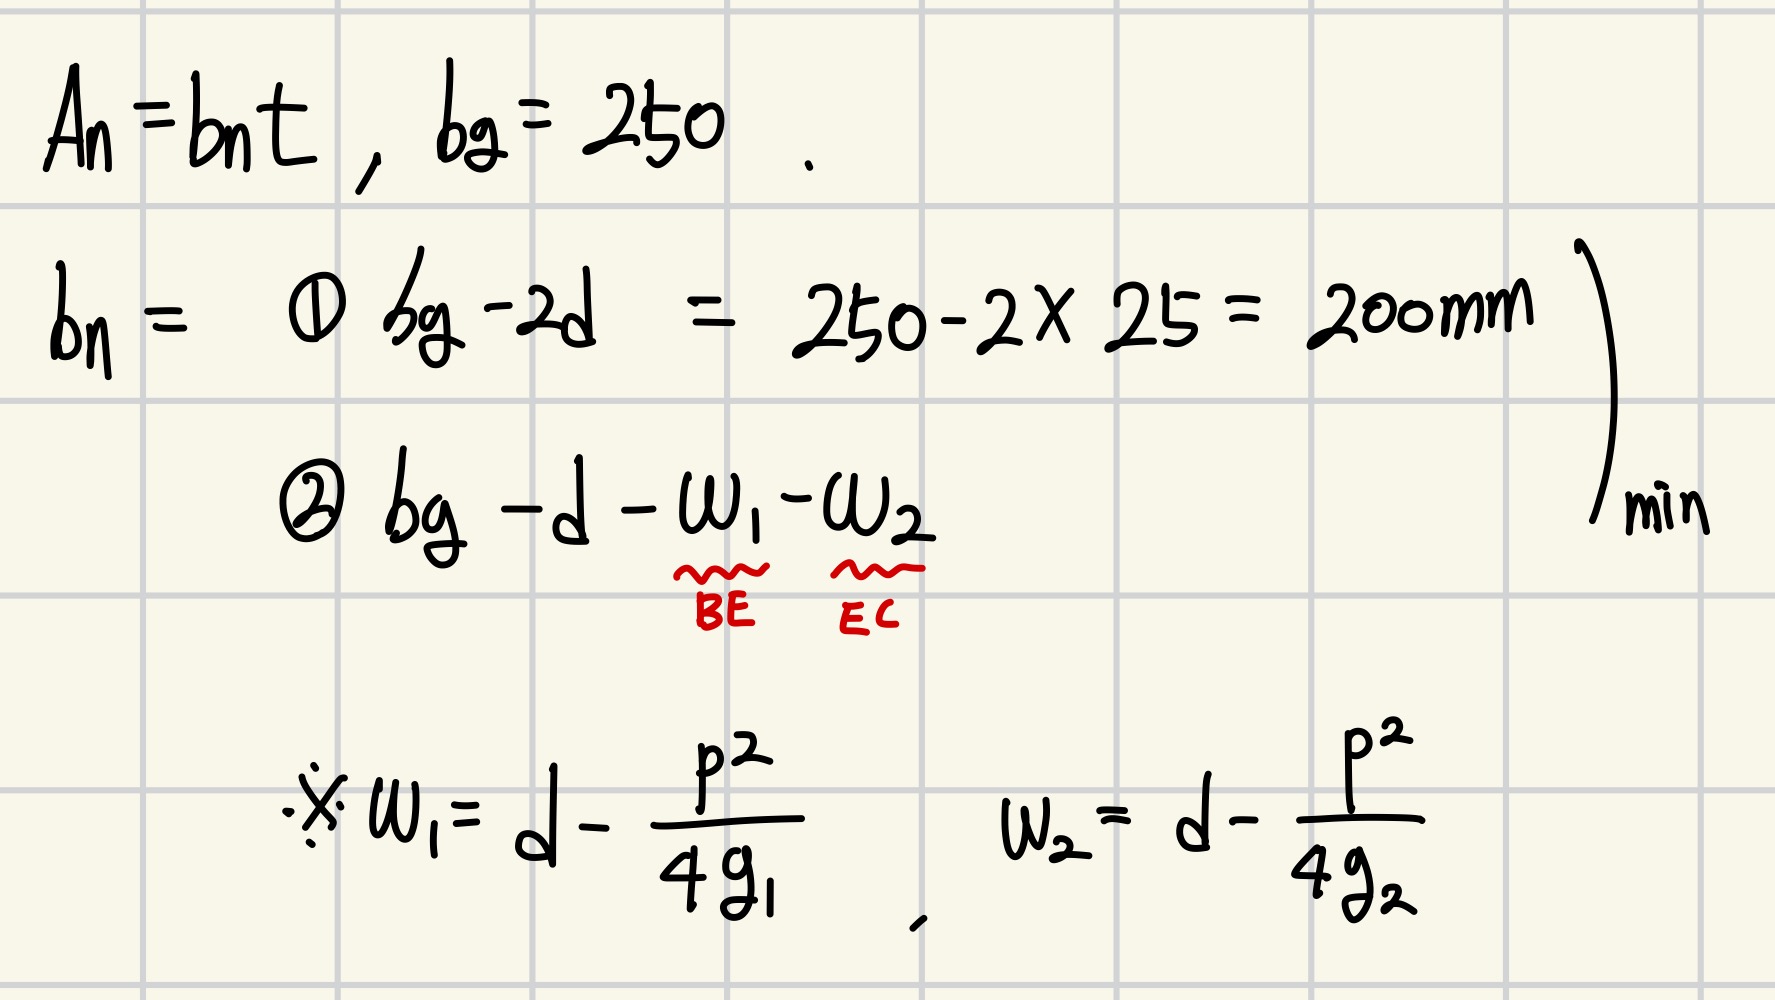 An = bnt , bg = 250 .
bn = ① bg - 2d = 250 - 2 × 25 = 200mm ) min
② bg - d - w₁ - w₂
BE EC
※ w₁ = d - p²/4g₁ , w₂ = d - p²/4g₂